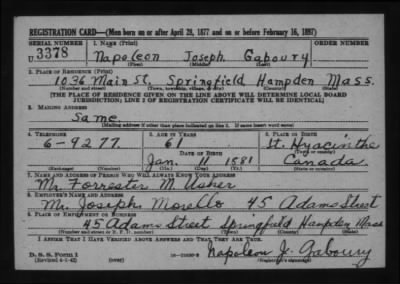 REGISTRATION CARD—(Men born on or after April 28, 1877 and on or before February 16, 1897)
SERIAL NUMBER 1. NAME (Print)
U 3378 Napoleon Joseph Gaboury
(First) (Middle) (Last)
2. PLACE OF RESIDENCE (Print)
1036 Main St. Springfield Hampden Mass.
(Number and street) (Town, township, village, or city) (County) (State)
[THE PLACE OF RESIDENCE GIVEN ON THE LINE ABOVE WILL DETERMINE LOCAL BOARD
JURISDICTION; LINE 2 OF REGISTRATION CERTIFICATE WILL BE IDENTICAL]
3. MAILING ADDRESS
Same
[Mailing address if other than place indicated on line 2. If same insert word same]
4. TELEPHONE 5. AGE IN YEARS 6. PLACE OF BIRTH
6-9277 61 St. Hyacinthe
DATE OF BIRTH (Town or county)
Jan. 11 1881 Canada
(Exchange) (Number) (Mo.) (Day) (Yr.) (State or country)
7. NAME AND ADDRESS OF PERSON WHO WILL ALWAYS KNOW YOUR ADDRESS
Mr. Forrester M. Usher
8. EMPLOYER'S NAME AND ADDRESS
Mr. Joseph Morello 45 Adams Street
9. PLACE OF EMPLOYMENT OR BUSINESS
45 Adams Street Springfield Hampden Mass
(Number and street or R. F. D. number) (Town) (County) (State)
I AFFIRM THAT I HAVE VERIFIED ABOVE ANSWERS AND THAT THEY ARE TRUE.
D. S. S. Form 1
(Revised 4-1-42) (over) Napoleon J. Gaboury